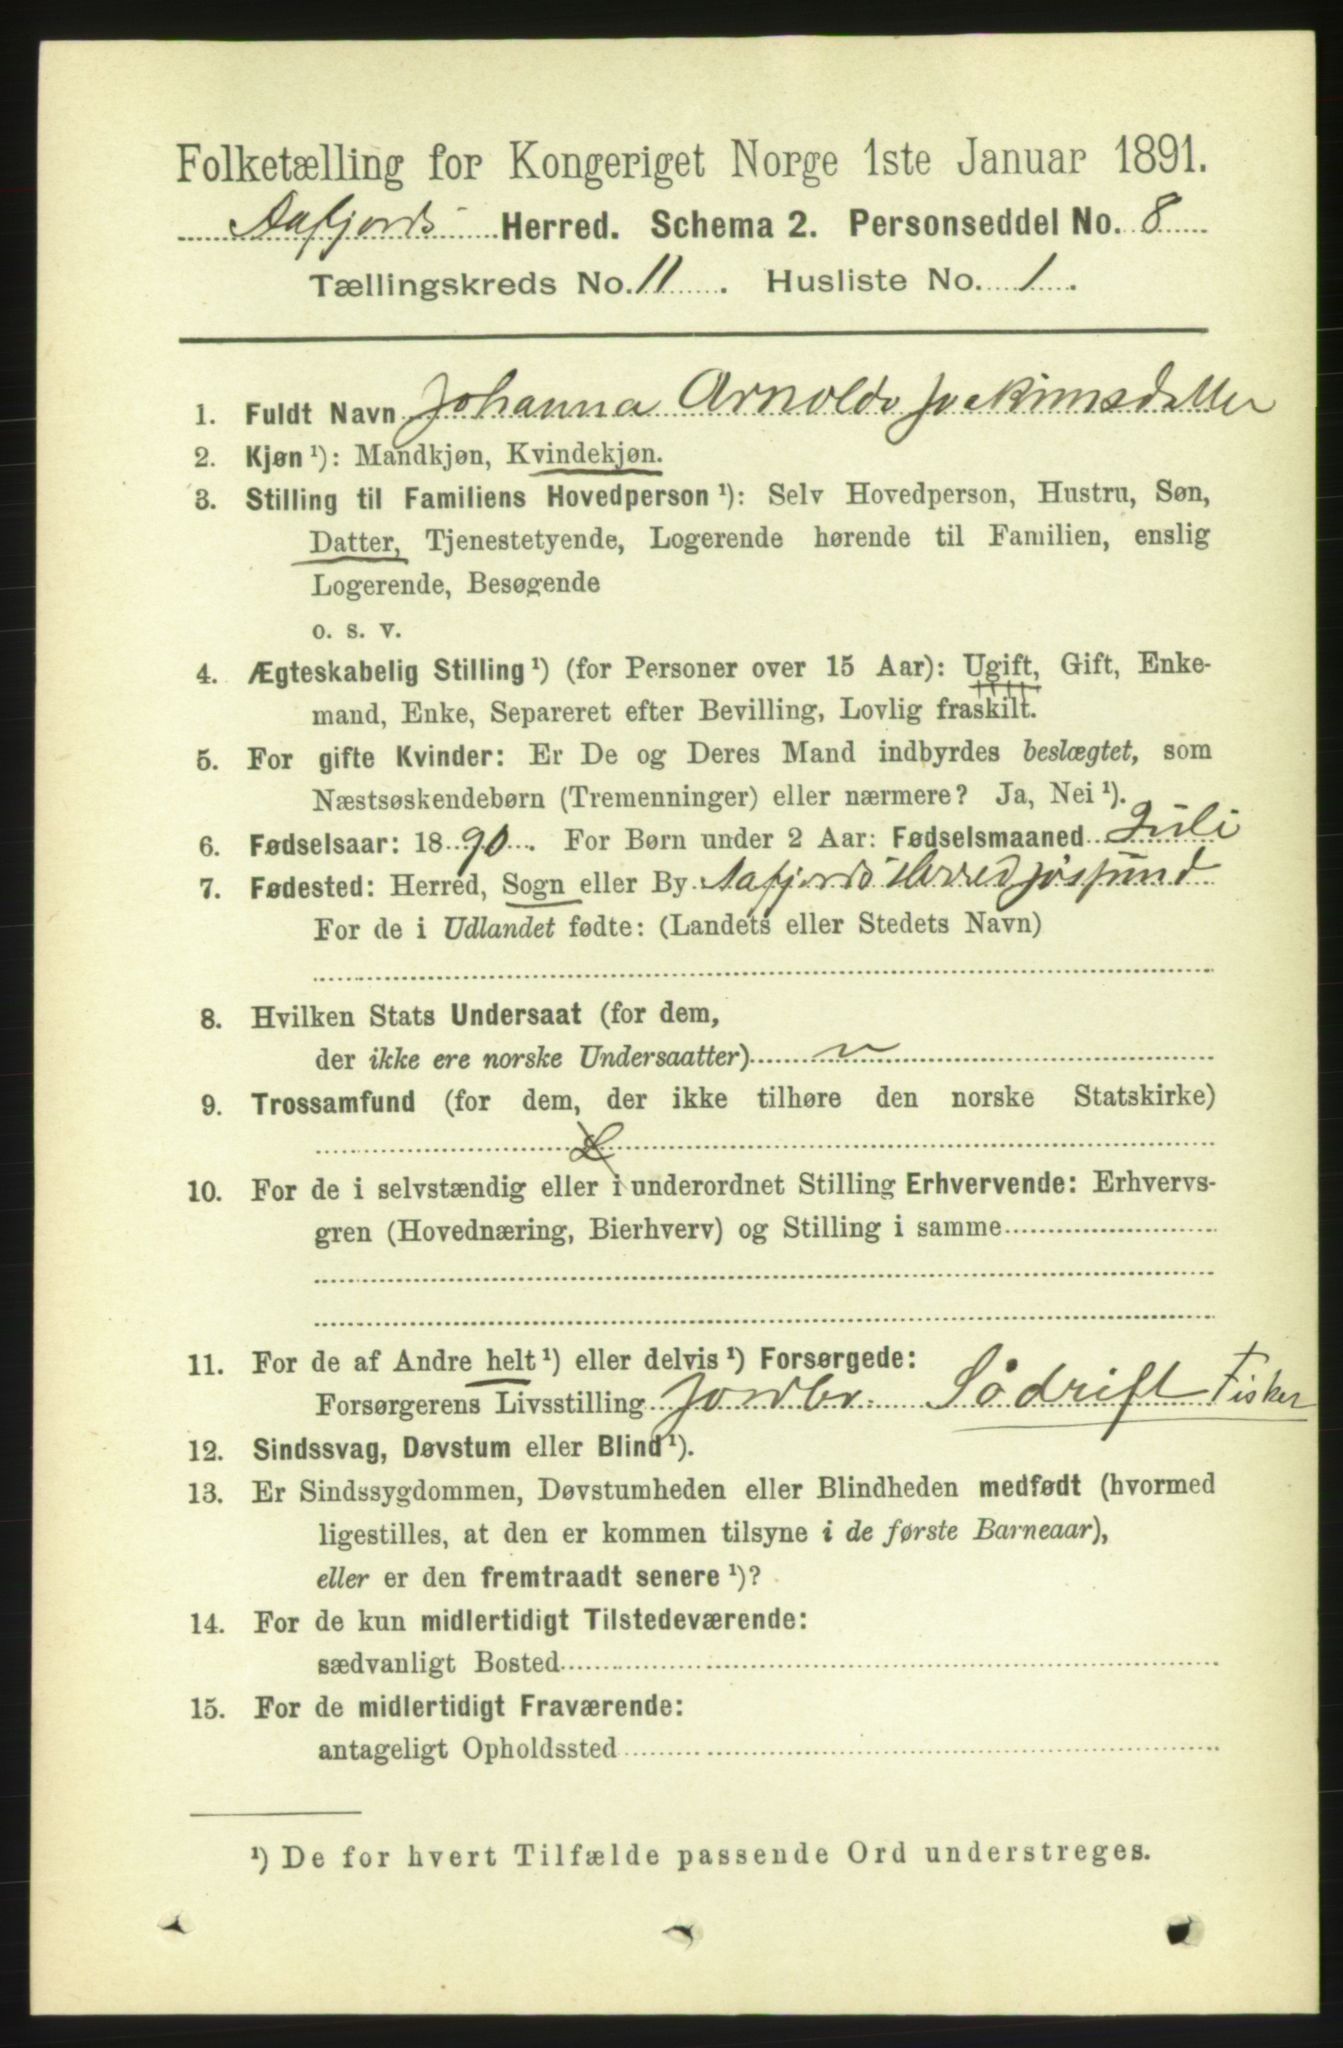 Folketælling for Kongeriget Norge 1ste Januar 1891.
Aafjords Herred. Schema 2. Personseddel No. 8
Tællingskreds No. 11. Husliste No. 1.
1. Fuldt Navn Johanna Arnolda Jokimsdatter
2. Kjøn ¹): Mandkjøn, Kvindekjøn.
3. Stilling til Familiens Hovedperson ¹): Selv Hovedperson, Hustru, Søn,
Datter, Tjenestetyende, Logerende hørende til Familien, enslig
Logerende, Besøgende
o. s. v.
4. Ægteskabelig Stilling ¹) (for Personer over 15 Aar): Ugift, Gift, Enke-
mand, Enke, Separeret efter Bevilling, Lovlig fraskilt.
5. For gifte Kvinder: Er De og Deres Mand indbyrdes beslægtet, som
Næstsøskendebørn (Tremenninger) eller nærmere? Ja, Nei ¹).
6. Fødselsaar: 1890. For Børn under 2 Aar: Fødselsmaaned Juli
7. Fødested: Herred, Sogn eller By Aafjords Herred Jøssund
For de i Udlandet fødte: (Landets eller Stedets Navn)
8. Hvilken Stats Undersaat (for dem,
der ikke ere norske Undersaatter) n
9. Trossamfund (for dem, der ikke tilhøre den norske Statskirke)
10. For de i selvstændig eller i underordnet Stilling Erhvervende: Erhvervs-
gren (Hovednæring, Bierhverv) og Stilling i samme
11. For de af Andre helt ¹) eller delvis ¹) Forsørgede:
Forsørgerens Livsstilling Jordbr. Sødrift Fisker
12. Sindssvag, Døvstum eller Blind ¹).
13. Er Sindssygdommen, Døvstumheden eller Blindheden medfødt (hvormed
ligestilles, at den er kommen tilsyne i de første Barneaar),
eller er den fremtraadt senere ¹)?
14. For de kun midlertidigt Tilstedeværende:
sædvanligt Bosted
15. For de midlertidigt Fraværende:
antageligt Opholdssted
¹) De for hvert Tilfælde passende Ord understreges.